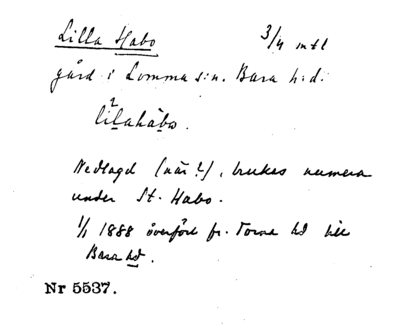 Lilla Habo 3/4 mtl
gård i Lomma s:n. Bara h:d.
2
lilahàbo.
Nedlagd (när?), brukas numera
under St. Habo.
1/1 1888 överförd fr. Torna hd till
Bara hd.
Nr 5537.